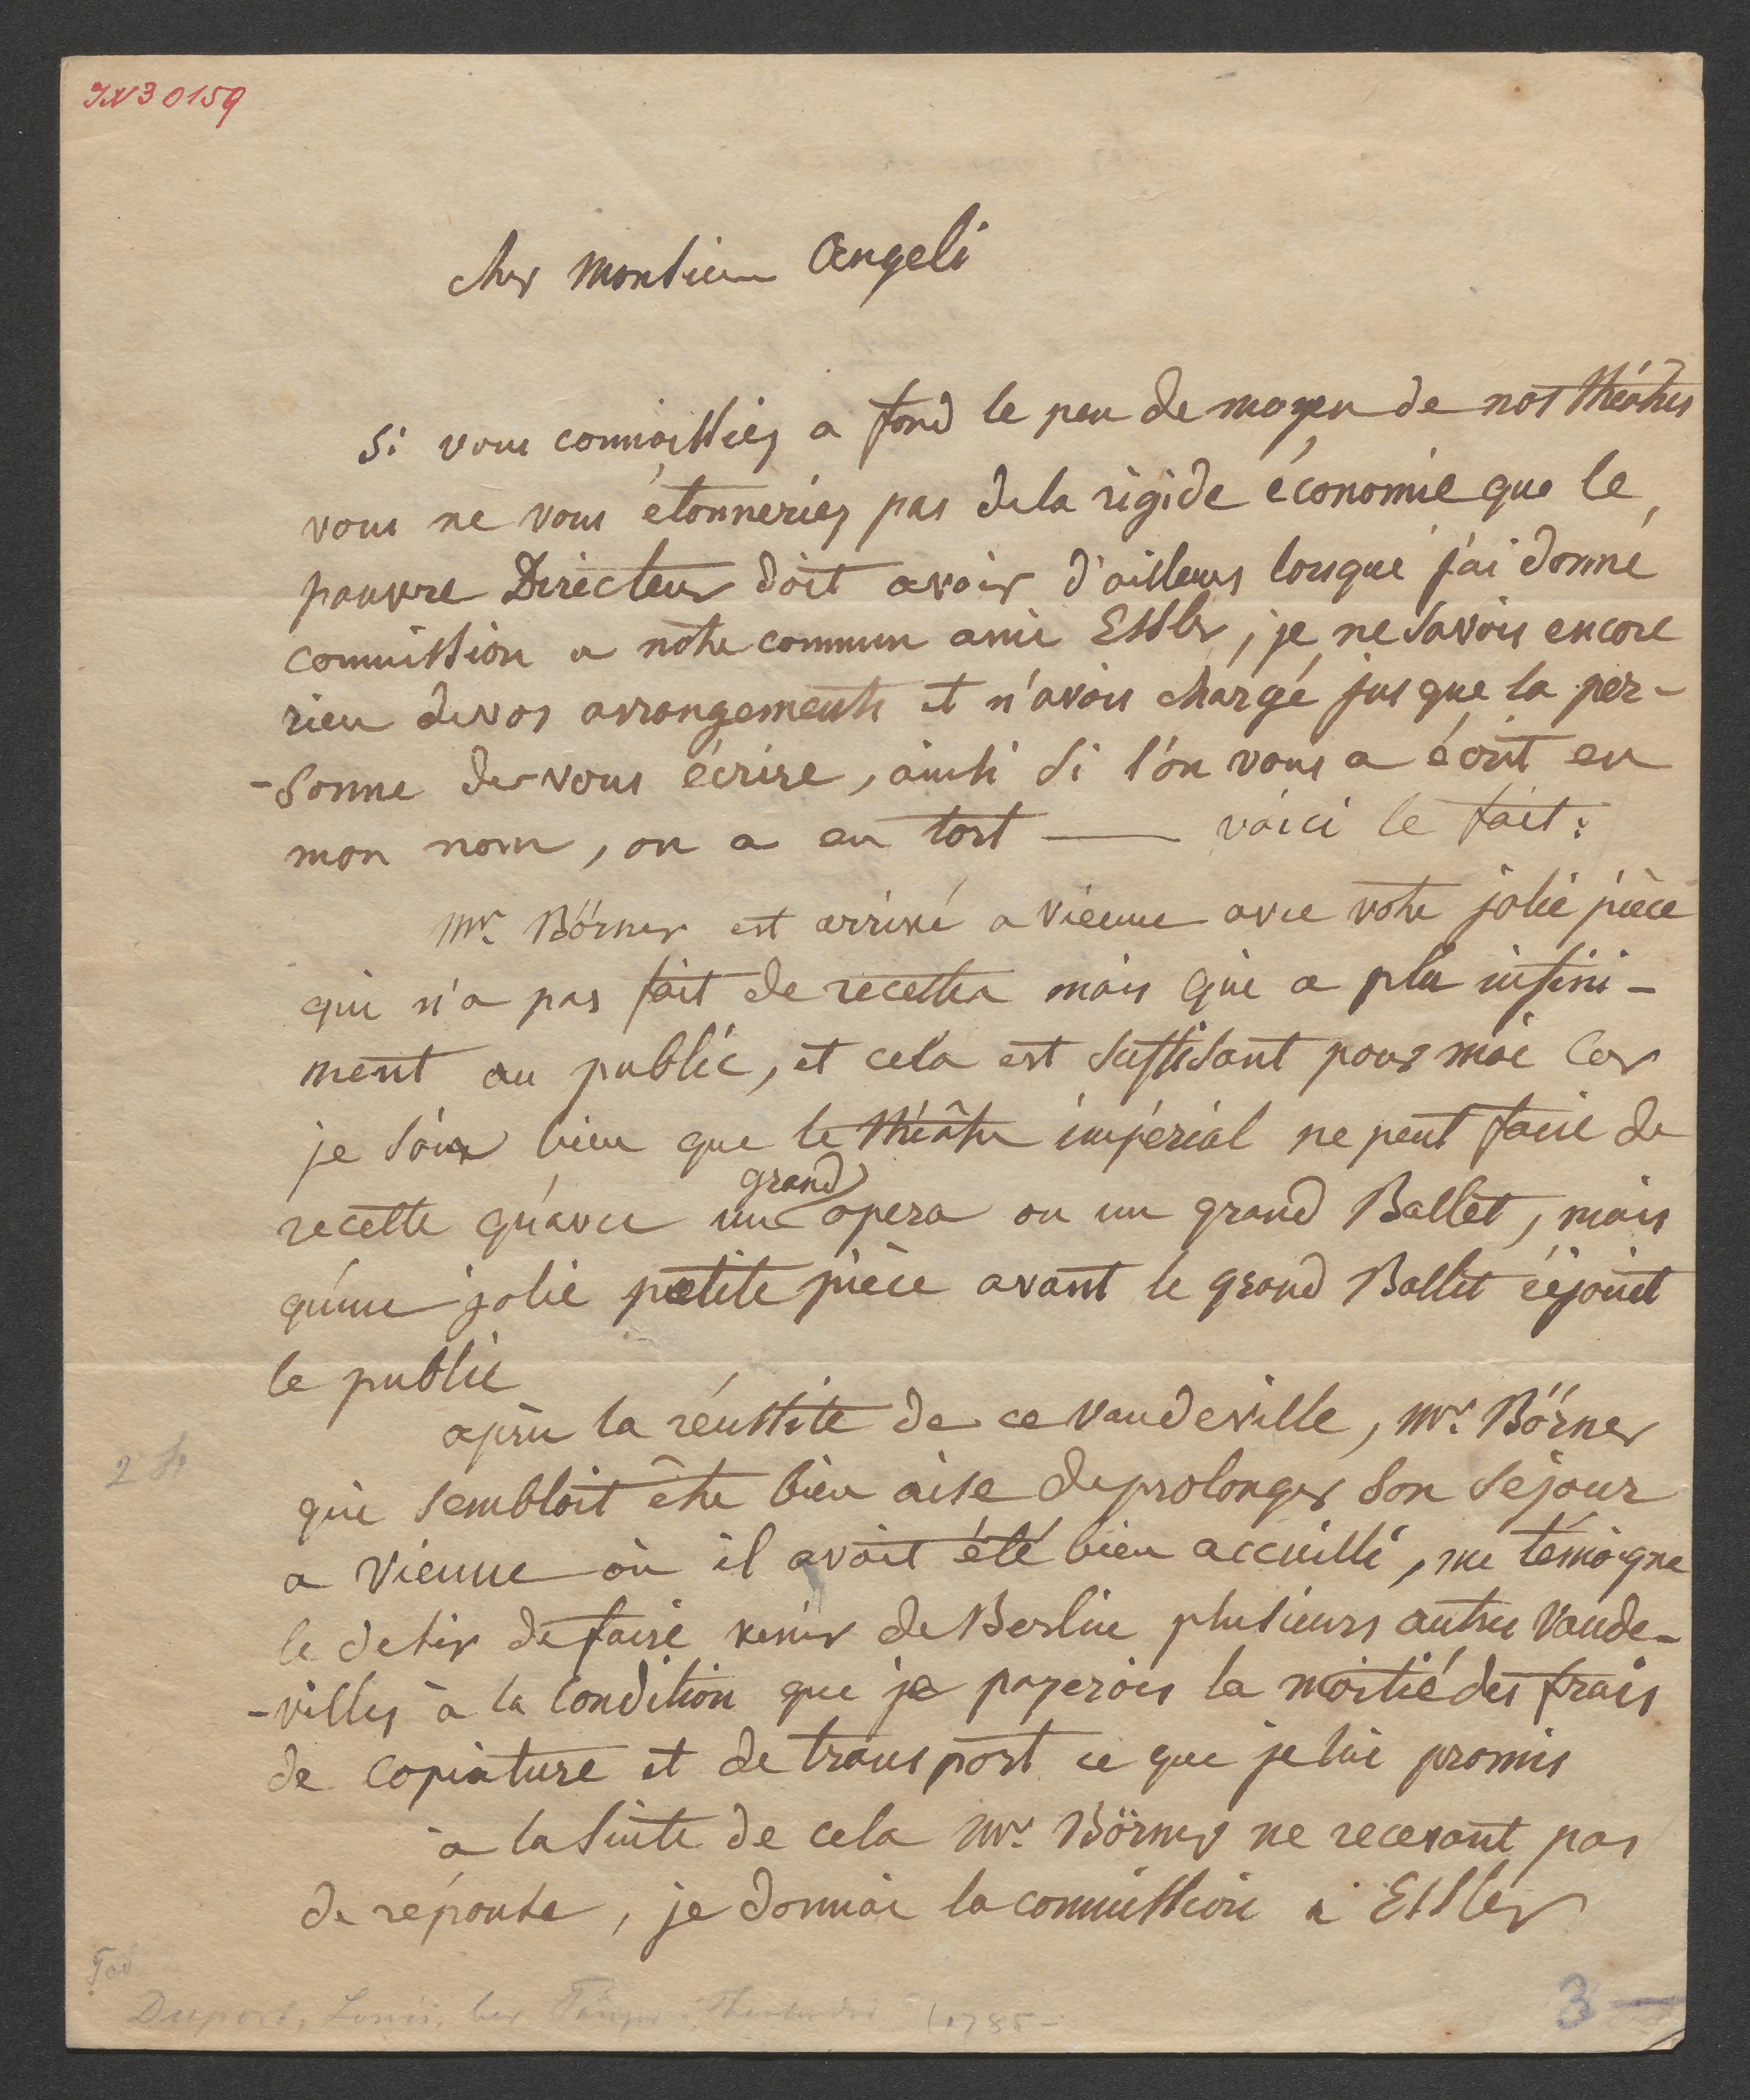 IN 30159
cher Monsieur Angeli
Si vous connoissiez a fond le peu de moyen de nos théâtres
vous ne vous étonneriez pas de la rigide économie que le
pauvre Directeur doit avoir d'ailleurs lorsque j'ai donné
commission a notre commun ami Essler, je ne savois encore
rien de vos arrangements et n'avois chargé jusque la per-
-sonne de vous écrire, ainsi si l'on vous a écrit en
mon nom, on a eu tort —— voici le fait:
Mr. Börner est arrivé a vienne avec votre jolie pièce
qui n'a pas fait de recettes mais qui a plu infini-
ment au public, et cela est suffisant pour moi car
je sais bien que le théâtre impérial ne peut faire de
grand
recette qu'avec un opera ou un grand Ballet, mais
qu'une jolie petite pièce avant le grand Ballet réjouit
le public
après la réussite de ce vaudeville, Mr. Börner
qui sembloit être bien aise de prolonger son séjour
a Vienne où il avoit été bien accuilli, me témoigne
le desir de faire venir de Berlin plusieurs autres Vaude-
-villes à la Condition que je payerois la moitié des frais
de copiature et de transport ce que je lui promis
à la suite de cela Mr. Börner ne recevant pas
de réponse, je donnai la commission à Essler
Duport, Louis, 1785-
3 —